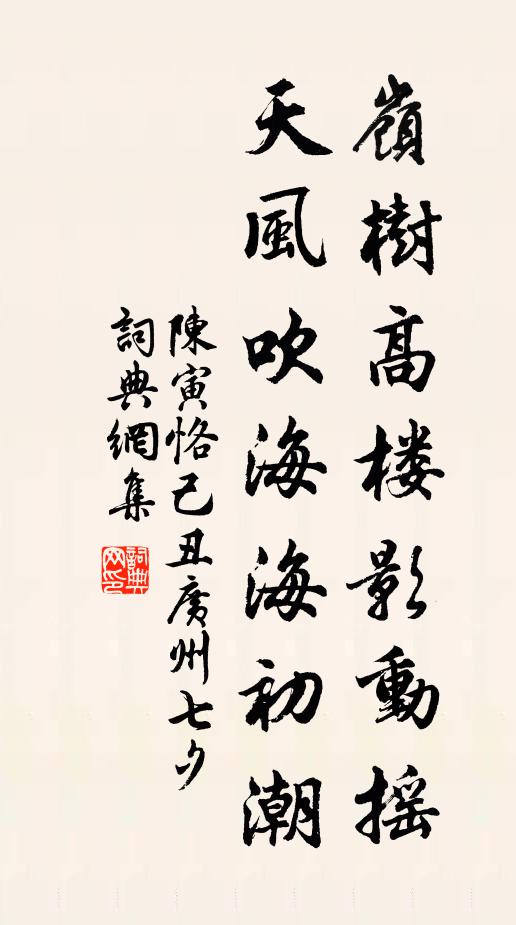 嶺樹高楼影動摇
天風吹海海初潮
陳寅恪己丑廣州七夕
詞典網集
詞典网印